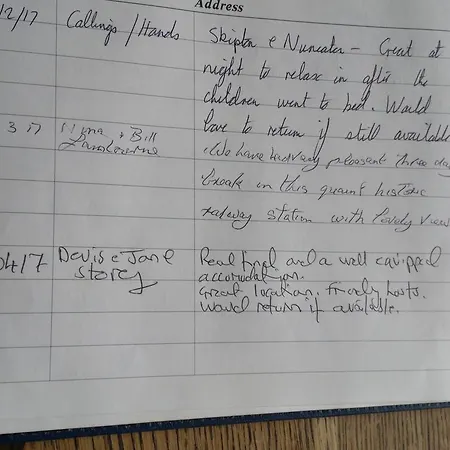 Address
12/17 Callings / Hands Skipton & Nuneaton - Great at
night to relax in after the
children went to bed. Would
love to return if still available
3 17 + Bill We have had very pleasent three day
break in this quaint historic
railway station with lovely view
04/7 Denis & Jane Real find and a well equipped
Storey accomodation.
Great location. Friendly hosts.
Would return if available.